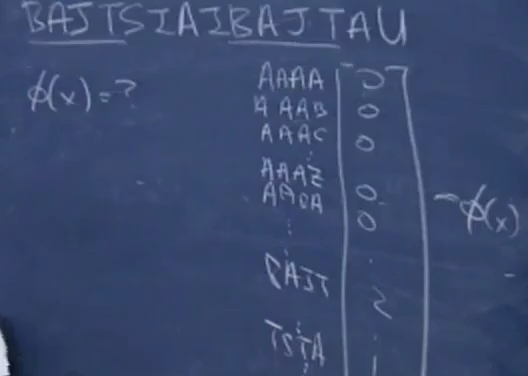 BAJTSIAIBAJTAU
ϕ(x)=?
AAAA 0
AAAB 0
AAAC 0
AAAZ 0
AABA 0
BAJT 2
TSIA 1
ϕ(x)